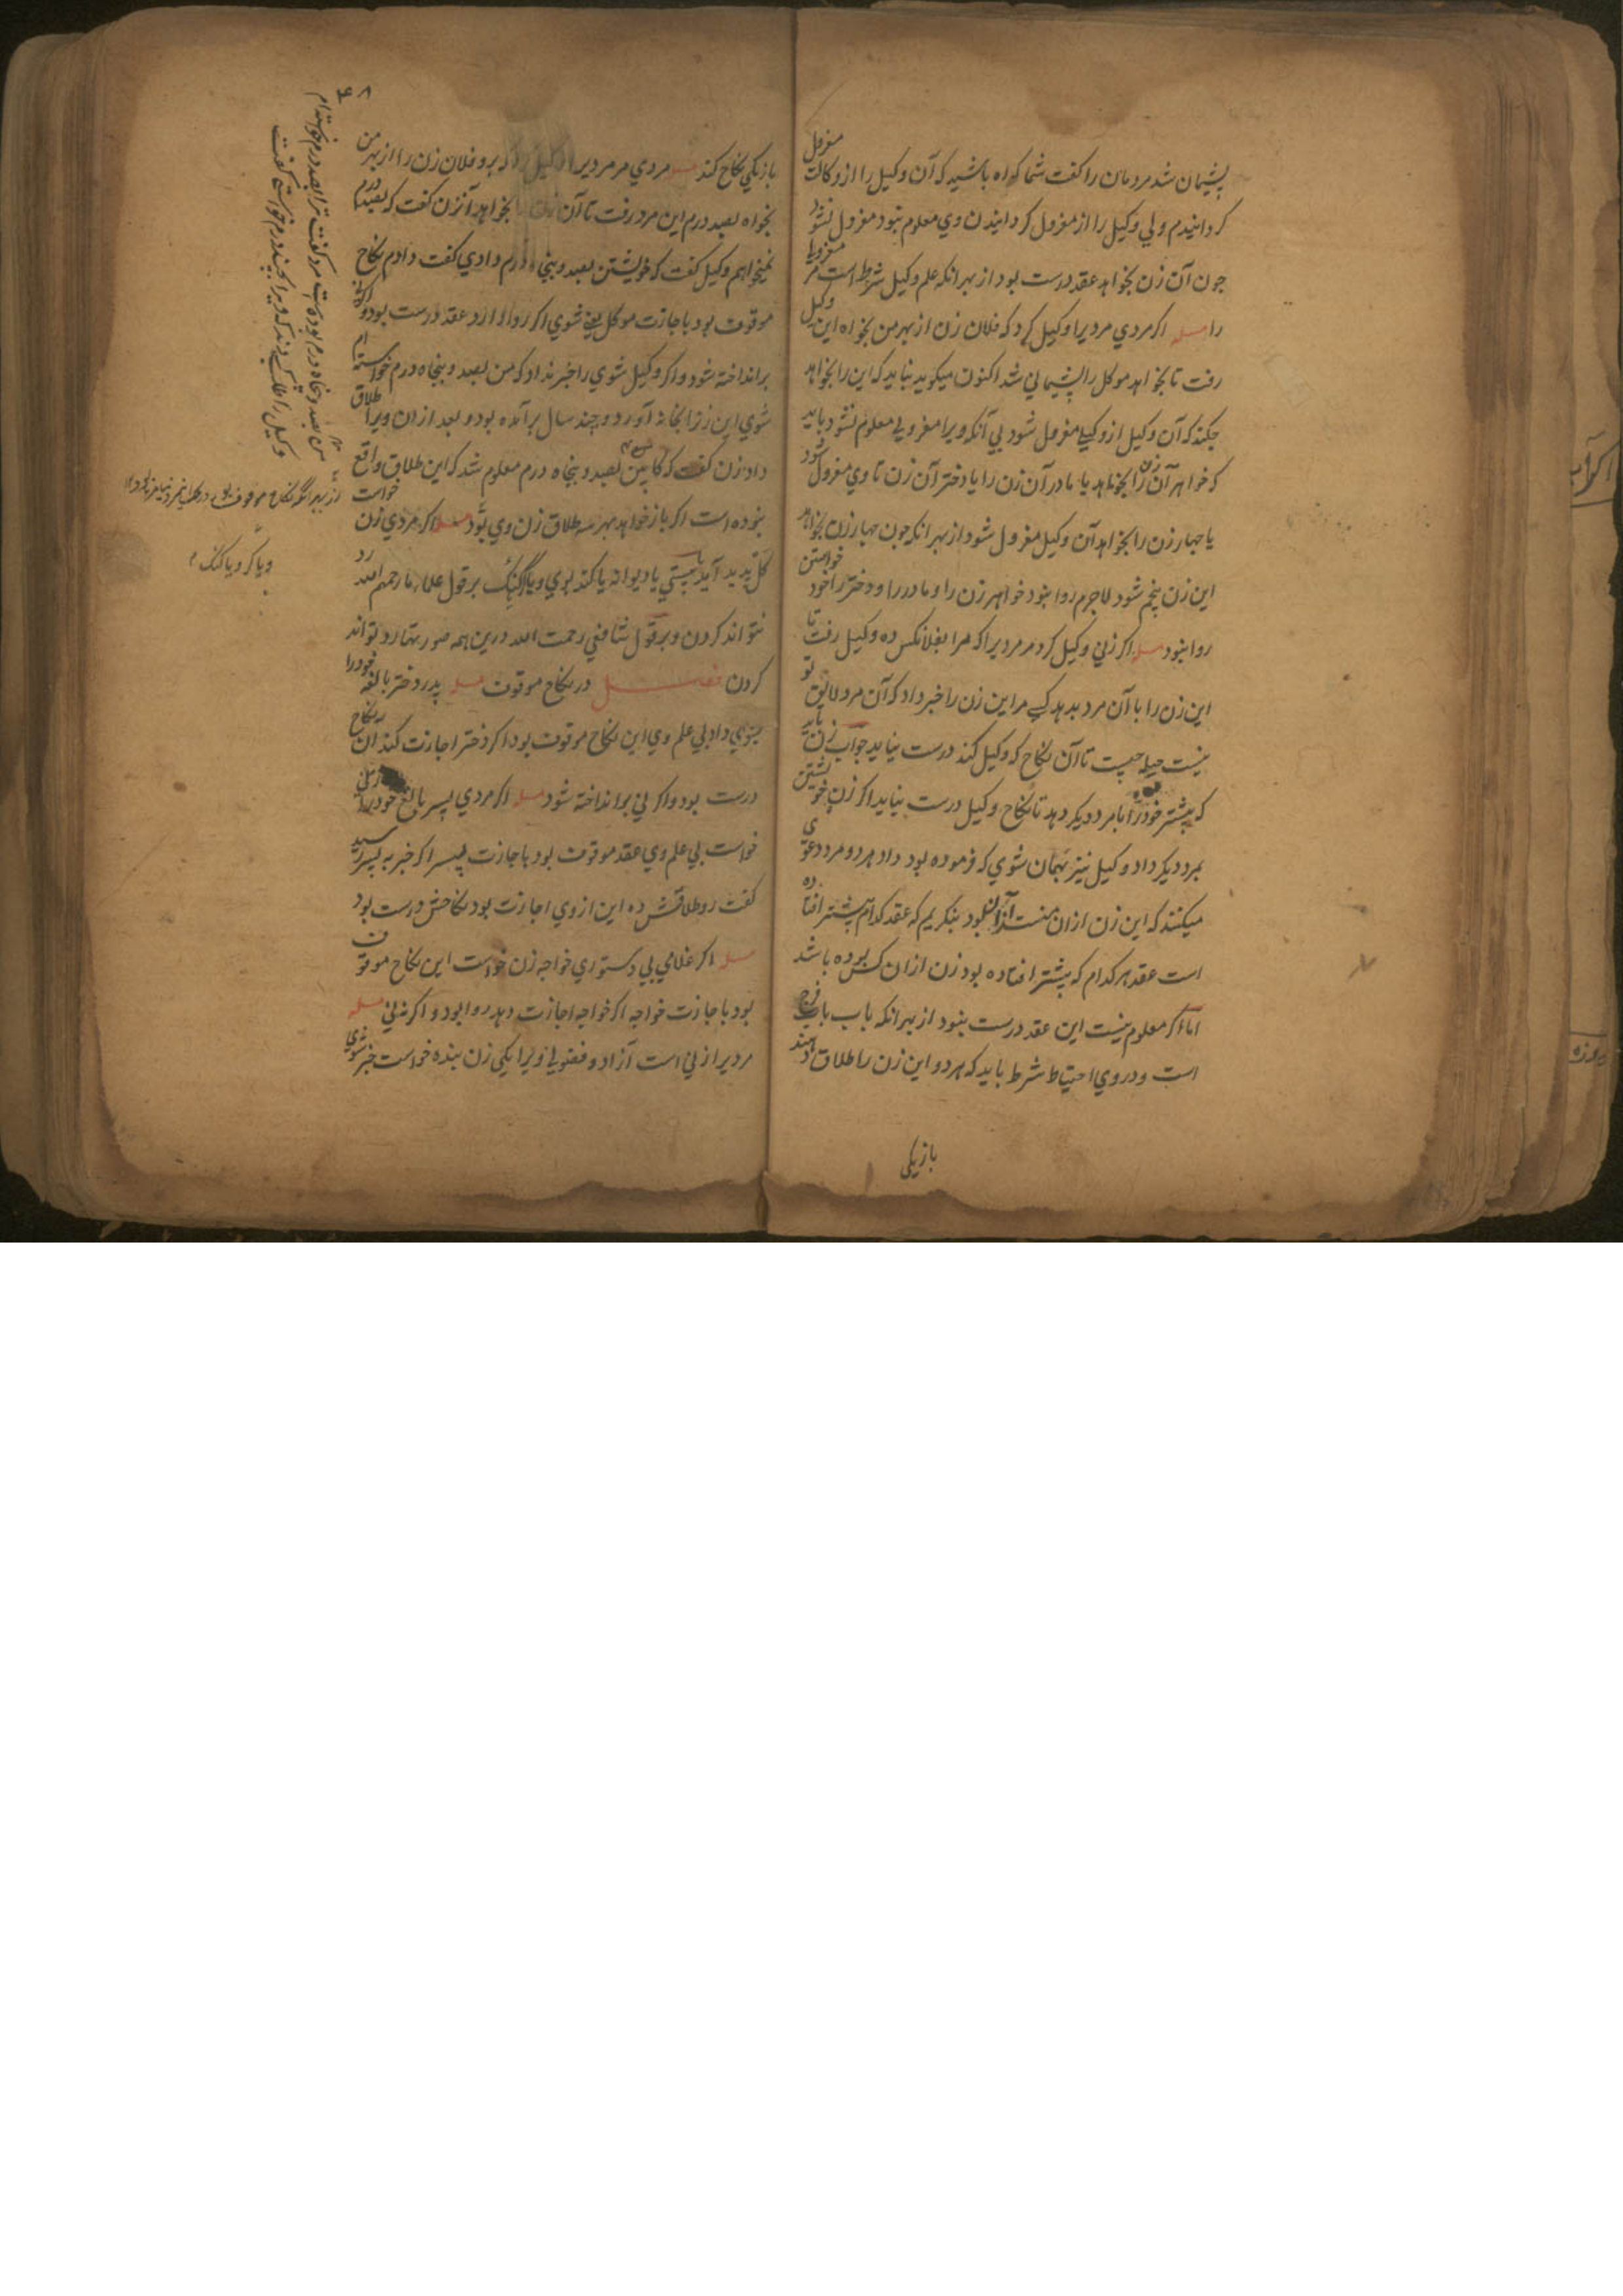 پشیمان شد مردمان را کفت شما کواه باشید که آن وکیل را از وکالت معزول
کردانیدم ولی وکیل را از معزول کردانیدن وی معلوم نبود معزول نشود
جون آن زن بخواهد عقد درست بود از بهر انکه علم وکیل شرط است مر معزولی
را مسله اکر مردی مردیرا وکیل کرد که فلان زن از بهر من بخواه این وکیل
رفت تا بخواهد موکل را پشیمانی شد اکنون میکوید نباید که این را بخواهد
جکند که آن وکیل از وکیلی معزول شود بی آنکه ویرا معزولی معلوم نشود باید
که خواهر آن زن را بخواهد یا مادر آن زن را یا دختر آن زن تا وی معزول شود
یا جهار زن را بخواهد آن وکیل معزول شود از بهر انکه جون جهار زن بخواهد
این زن پنجم شود لاجرم روا نبود خواهر زن را و مادر را و دختر را خود خواستن
روا نبود مسله اکر زنی وکیل کرد مر مردیرا که مرا بفلانکس ده وکیل رفت تا
این زن را با آن مرد بدهد کسی مر این زن را خبر داد که آن مرد لایق تو
نیست حیله جیست تا آن نکاح که وکیل کند درست نیاید جواب زن باید
که پیشتر خود را با مرد دیکر دهد تا نکاح وکیل درست نیاید اکر زن خویشتن
بمرد دیکر داد وکیل نیز بهمان شوی که فرموده بود داد هر دو مرد دعوی
میکنند که این زن ازان منست بنکریم که عقد کدام پیشتر افتاده
است عقد هر کدام که پیشتر افتاده بود زن ازان کس بوده باشد
اما اکر معلوم نیست این عقد درست نبود از بهر انکه باب باب فرج
است و در وی احتیاط شرط باید که هر دو این زن را طلاق دهند
بازیکی
۴۸
بازیکی نکاح کند مسله مردی مر مردیرا وکیل کرد که برو فلان زن را از بهر من
بخواه بصد درم این مرد رفت تا آن زن را بخواهد آنزن کفت که بصد درم
نمیخواهم وکیل کفت که خویشتن بصد و پنجاه درم دادی کفت دادم نکاح
موقوف بود باجازت موکل یعنی شوی اکر روا دارد عقد درست بود و اکرنه
برانداخته شود و اکر وکیل شوی را خبر نداد که من بصد و پنجاه درم خواسته ام
شوی این زنرا بخانه آورد و چند سال برآمده بود و بعد ازان ویرا طلاق
داد زن کفت که کابین من بصد و پنجاه درم معلوم شد که این طلاق واقع
نبوده است اکر باز خواهد بهر سه طلاق زن وی بود مسله اکر مردی زن خواست
کل پدید آید یا پیستی یا دیوانه یا کنده بوی و یا کر کنک بر قول علماء ما رحمهم الله رد
نتواند کردن و بر قول شافعی رحمت الله درین همه صورتها رد تواند
کردن فصل در نکاح موقوف مسله پدر دختر بالغه خود را
بشوی داد بی علم وی این نکاح موقوف بود اکر دختر اجازت کند آن نکاح
درست بود و اکر نی برانداخته شود مسله اکر مردی پسر بالغ خود را زنی
خواست بی علم وی عقد موقوف بود باجازت پسر اکر خبر به پسر رسید
کفت رو طلاقش ده این از وی اجازت بود نکاحش درست بود
مسله اکر غلامی بی دستوری خواجه زن خواست این نکاح موقوف
بود باجازت خواجه اکر خواجه اجازت دهد روا بود و اکرنه نی مسله
مردیرا زنی است آزاد و فضولی ویرا یکی زن بنده خواست خبر شوی
من بصد و پنجاه درم بوده است مرد کفت ترا بصد درم خواسته ام
وکیل را طلب کردند که ویرا بچند درم خواستی کفت
از بهر انکه نکاح موقوف بود
و یا کر و یا کنک